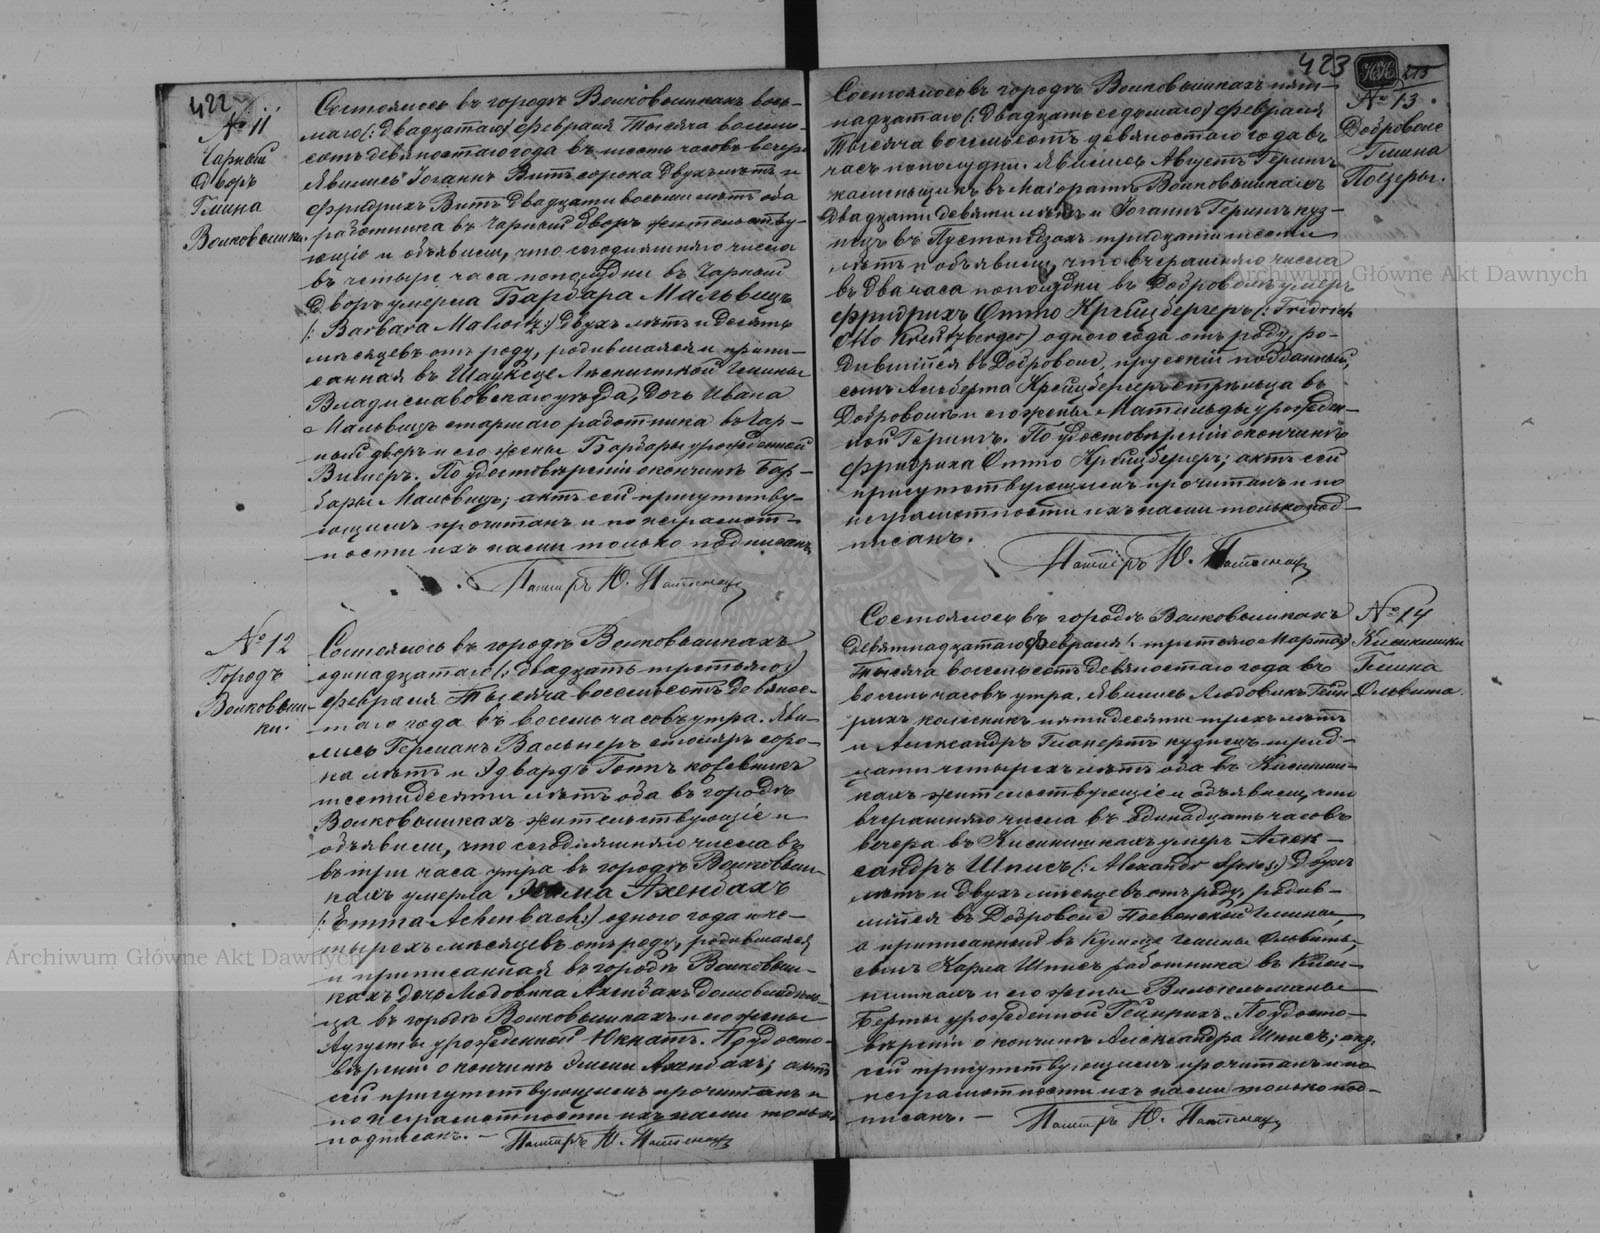 422
№ 11
Чарный
Дворъ
Гмина
Волковышки.
Состоялось въ городѣ Волковышкахъ вось-
маго (: двадцатаго) Февраля Тысяча восемь-
сотъ девяностаго года въ шесть часовъ вечера
Явились Іоганнъ Витъ сорока двухъ лѣтъ и
Фридрихъ Витъ двадцати восьми лѣтъ оба
работника въ Чарный Дворъ жительству-
ющіе и объявили, что сегодняшняго числа
въ четыре часа пополудни въ Чарный
Дворъ умерла Барбара Мальвицъ
(: Barbara Malwitz:) двухъ лѣтъ и десять
мѣсяцевъ отъ роду, родившаяся и припи-
санная въ гмины
Владиславовскаго уѣзда, дочь Ивана
Мальвицъ старшаго работника въ Чар-
ный дворъ и его жены Барбары урожденной
По удостовѣреніи о кончинѣ Бар-
бары Мальвицъ; актъ сей присутству-
ющимъ прочитанъ и по неграмот-
ности ихъ нами только подписанъ
Пасторъ Ю.
№ 12
Городъ
Волковыш-
ки.
Состоялось въ городѣ Волковышкахъ
одинадцатаго (: двадцать третьяго:)
Февраля Тысяча восемьсотъ девянос-
таго года въ восемь часовъ утра. Яви-
лись Германъ Вальнеръ столяръ соро-
ка лѣтъ и Эдвардъ Готъ кожевникъ
шестидесяти лѣтъ оба въ городѣ
Волковышкахъ жительствующіе и
объявили, что сегодняшняго числа въ
въ три часа утра въ городѣ Волковыш-
кахъ умерла Эмма Ахенбахъ
(: Emma Achenbach:) одного года и че-
тырехъ мѣсяцевъ отъ роду, родившаяся
и приписанная въ городѣ Волковыш-
кахъ дочь Людовика Ахенбахъ домовладѣль-
ца въ городѣ Волковышкахъ и его жены
Августы урожденной Юкнатъ. По удосто-
вѣреніи о кончинѣ Эммы Ахенбахъ; актъ
сей присутствующимъ прочитанъ и
по неграмотности ихъ нами только
подписанъ. –
Пасторъ Ю.
423
№ 13.
Доброволе
Гмина
Поезеры.
Состоялось въ городѣ Волковышкахъ пят-
надцатаго (: двадцать седьмаго) Февраля
Тысяча восемьсотъ девяностаго года въ
часъ пополудни. Явились Августъ Герингъ
каменьщикъ въ Маіоратѣ Волковышкахъ
двадцати девяти лѣтъ и Іоганъ Герингъ куз-
нецъ въ тридцати шести
лѣтъ и объявили, что вчерашняго числа
въ два часа пополудни въ Доброволѣ умеръ
Фридрихъ Отто Крейцбергеръ (: Fridrich
Otto Kreutzberger) одного года отъ роду, ро-
дившійся въ Доброволѣ, прусскій подданный,
сынъ Альберта Крейцбергеръ стрѣльца въ
Доброволѣ и его жены Матильды урожден-
ной Герингъ. По удостовѣреніи о кончинѣ
Фридриха Отто Крейцбергеръ; актъ сей
присутствующимъ прочитанъ и по
неграмотности ихъ нами только под-
писанъ.
Пасторъ Ю.
№ 14
Кисинишки
Гмина
Ольвита.
Состоялось въ городѣ Волковышкахъ
девятнадцатаго Февраля (: третьяго Марта)
Тысяча восемьсотъ девяностаго года въ
восемь часовъ утра. Явились Людовикъ Гейн-
рихъ колесникъ пятидесяти трехъ лѣтъ
и Александръ кузнецъ трид-
цати четырехъ лѣтъ оба въ Кисиниш-
кахъ жительствующіе и объявили, что
вчерашняго числа въ одинадцать часовъ
вечера въ Кисинишкахъ умеръ Алек-
сандръ Шписъ (: Alexandr Spies:) двухъ
лѣтъ и двухъ мѣсяцевъ отъ роду, родив-
шійся въ Доброволѣ гмины,
а приписанный въ гмины Ольвита,
сынъ Карла Шписъ работника въ Киси-
нишкахъ и его жены Вильгельмины
Берты урожденной Гейнрихъ. По удосто-
вѣреніи о кончинѣ Александра Шписъ; актъ
сей присутствующимъ прочитанъ и по
неграмотности ихъ нами только под-
писанъ. –
Пасторъ Ю.
Archiwum Główne Akt Dawnych
Archiwum Główne Akt Dawnych